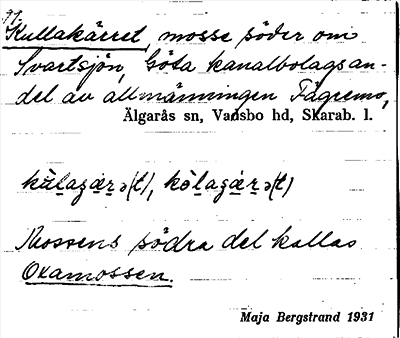 71.
Kullakärret, mosse söder om
Svartsjön, Göta kanalbolags an-
del av allmänningen Fägremo,
Älgarås sn, Vadsbo hd, Skarab. l.
Mossens södra del kallas
Oxamossen.
Maja Bergstrand 1931